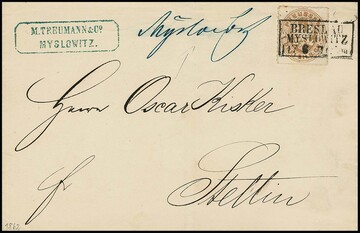 M. TREUMANN & Co
MYSLOWITZ.
Myslowitz
BRESLAU
MYSLOWITZ
Herrn Oscar Kisker
fr
Stettin
1862